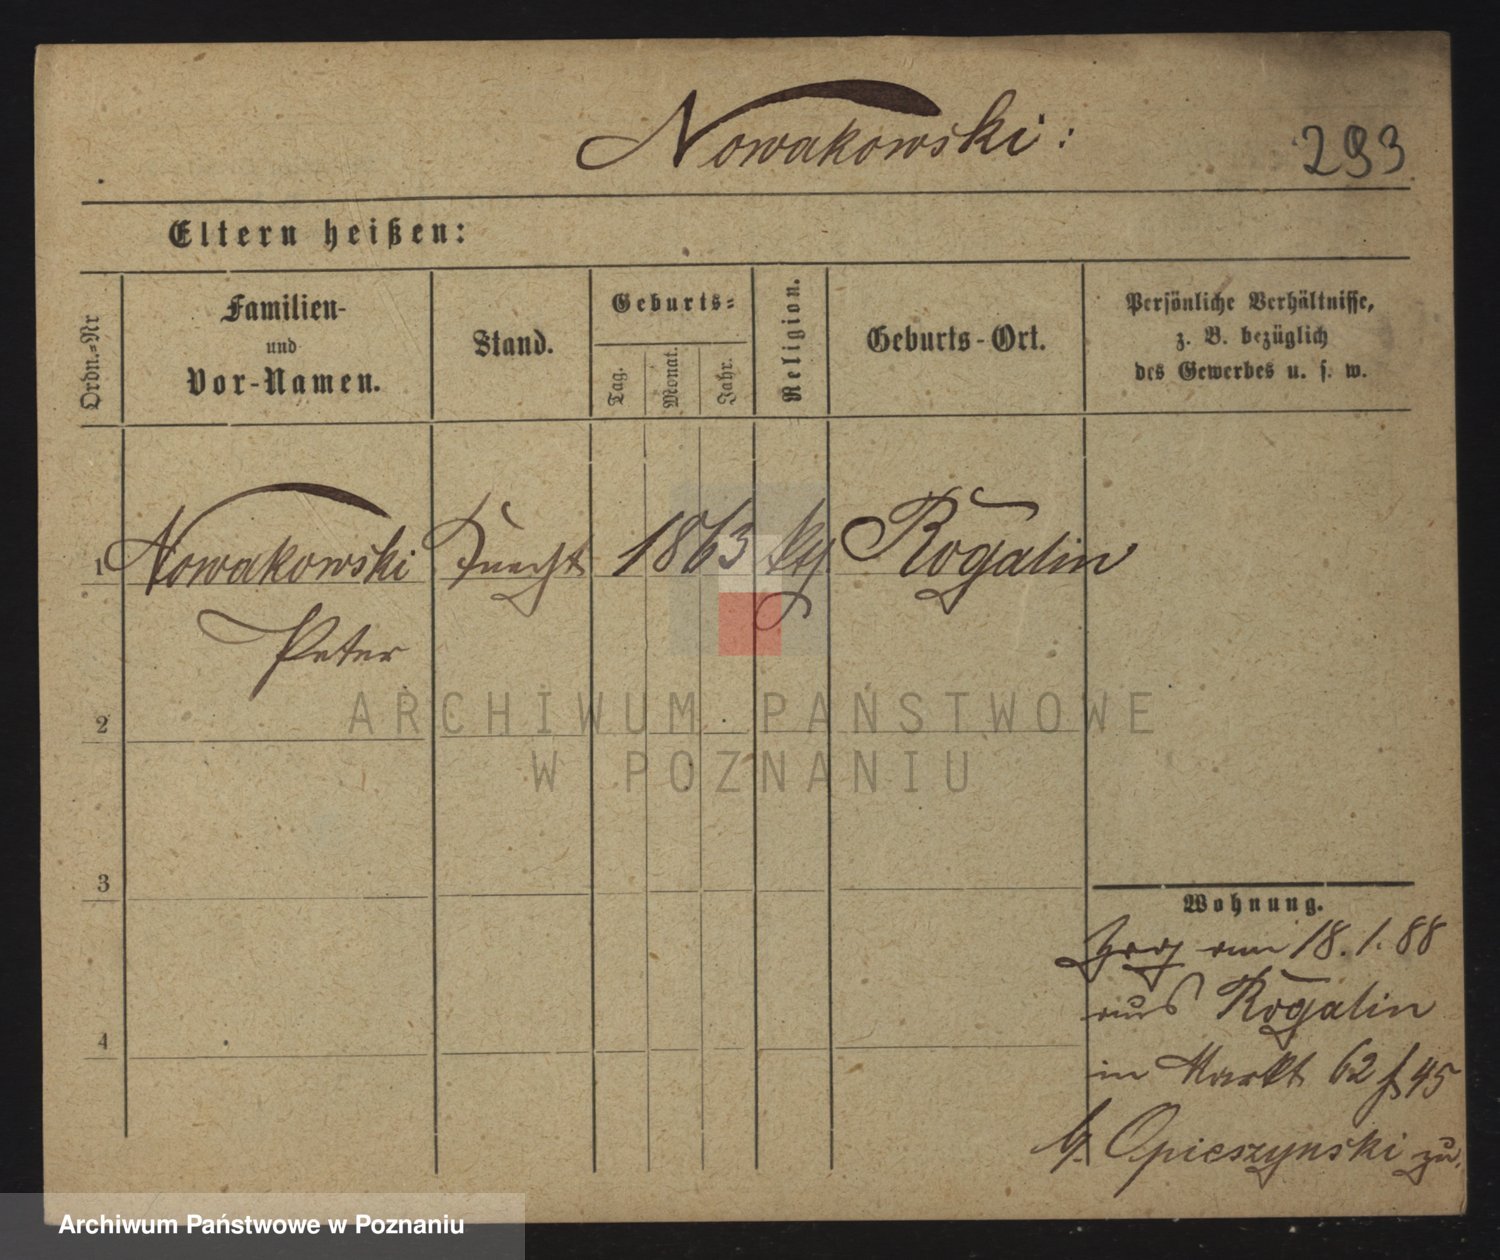 Nowakowski:
293
Eltern heißen:
Ordn.-Nr
Familien-
und
Vor-Namen.
Stand.
Geburts-
Tag.
Monat.
Jahr.
Religion.
Geburts-Ort.
Persönliche Verhältnisse,
z. B. bezüglich
des Gewerbes u. s. w.
1 Nowakowski Knecht 1863 Rogalin
Peter
2
3
4
Wohnung.
am 18.1.88
aus Rogalin
in Markt 62 45
b. Opieszynski zu.
ARCHIWUM PAŃSTWOWE
W POZNANIU
Archiwum Państwowe w Poznaniu